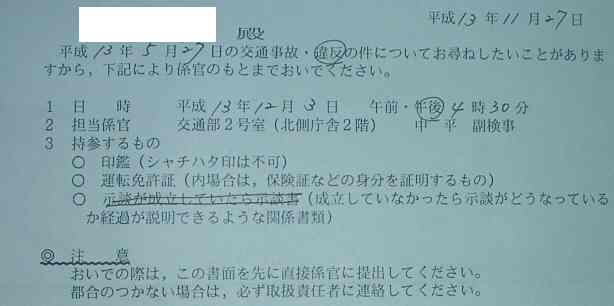 平成13年11月27日
殿
平成13年5月27日の交通事故・違反の件についてお尋ねしたいことがありま
すから、下記により係官のもとまでおいでください。
1 日 時 平成13年12月3日 午前・午後4時30分
2 担当係官 交通部2号室(北側庁舎2階) 中 平 副検事
3 持参するもの
○ 印鑑(シャチハタ印は不可)
○ 運転免許証(内場合は，保険証などの身分を証明するもの)
○ 示談が成立していたら示談書(成立していなかったら示談がどうなっている
か経過が説明できるような関係書類)
◎ 注 意
おいでの際は，この書面を先に直接係官に提出してください。
都合のつかない場合は，必ず取扱責任者に連絡してください。